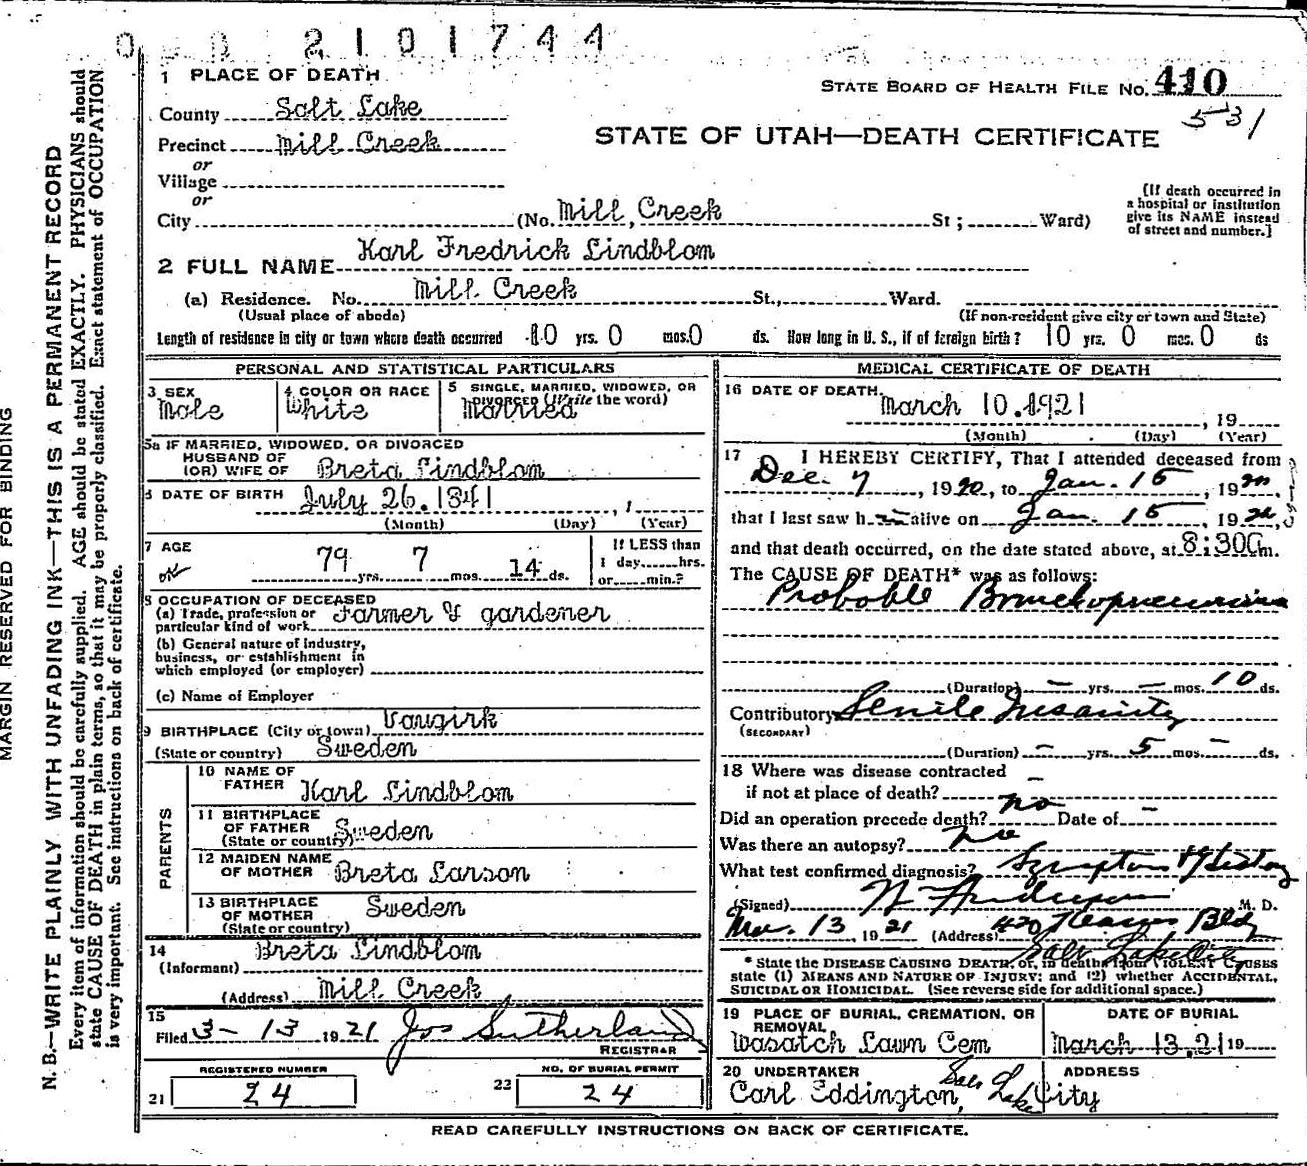 2101744
1 PLACE OF DEATH
STATE BOARD OF HEALTH FILE NO. 410
531
County Salt Lake
Precinct Mill Creek
STATE OF UTAH—DEATH CERTIFICATE
or
Village
or
City (No. Mill Creek St; Ward)
(If death occurred in
a hospital or institution
give its NAME instead
of street and number.]
2 FULL NAME Karl Fredrick Lindblom
(a) Residence. No. Mill Creek St., Ward.
(Usual place of abode) (If non-resident give city or town and State)
Length of residence in city or town where death occurred 10 yrs. 0 mos. 0 ds. How long in U. S., if of foreign birth? 10 yrs. 0 mos. 0 ds
PERSONAL AND STATISTICAL PARTICULARS
3 SEX Male
4 COLOR OR RACE White
5 SINGLE, MARRIED, WIDOWED, OR
DIVORCED (Write the word) Married
5a IF MARRIED, WIDOWED, OR DIVORCED
HUSBAND OF
(OR) WIFE OF Breta Lindblom
6 DATE OF BIRTH July 26. 1841
(Month) (Day) (Year)
7 AGE 79 yrs. 7 mos. 14 ds.
If LESS than
1 day......hrs.
or......min.?
8 OCCUPATION OF DECEASED
(a) Trade, profession or
particular kind of work Farmer & gardener
(b) General nature of industry,
business, or establishment in
which employed (or employer)
(c) Name of Employer
9 BIRTHPLACE (City or town)
(State or country) Sweden
PARENTS
10 NAME OF
FATHER Karl Lindblom
11 BIRTHPLACE
OF FATHER
(State or country) Sweden
12 MAIDEN NAME
OF MOTHER Breta Larson
13 BIRTHPLACE
OF MOTHER
(State or country) Sweden
14 (Informant) Breta Lindblom
(Address) Mill Creek
15 Filed 3-13 1921 Jos Sutherland
REGISTRAR
21 REGISTERED NUMBER 24
22 NO. OF BURIAL PERMIT 24
MEDICAL CERTIFICATE OF DEATH
16 DATE OF DEATH March 10. 1921, 19
(Month) (Day) (Year)
17 I HEREBY CERTIFY, That I attended deceased from
Dec. 7, 1920, to Jan. 15, 19
that I last saw h alive on Jan. 15, 19
and that death occurred, on the date stated above, at 8:30 m.
The CAUSE OF DEATH* was as follows:
Probable Bronchopneumonia
(Duration) — yrs. — mos. 10 ds.
Contributory Senile Insanity
(SECONDARY)
(Duration) — yrs. 5 mos. — ds.
18 Where was disease contracted
if not at place of death? —
Did an operation precede death? no Date of —
Was there an autopsy? no
What test confirmed diagnosis? Symptoms & History
(Signed) Anderson M. D.
Mar. 13, 1921 (Address) 420 Kearns Bldg
Salt Lake City
* State the DISEASE CAUSING DEATH, or, in deaths from VIOLENT CAUSES
state (1) MEANS AND NATURE OF INJURY; and (2) whether ACCIDENTAL,
SUICIDAL OR HOMICIDAL. (See reverse side for additional space.)
19 PLACE OF BURIAL, CREMATION, OR
REMOVAL
Wasatch Lawn Cem
DATE OF BURIAL
March 13, 21 19
20 UNDERTAKER
Carl Eddington,
ADDRESS
Salt Lake City
READ CAREFULLY INSTRUCTIONS ON BACK OF CERTIFICATE.
MARGIN RESERVED FOR BINDING
N. B.—WRITE PLAINLY WITH UNFADING INK—THIS IS A PERMANENT RECORD
Every item of information should be carefully supplied. AGE should be stated EXACTLY. PHYSICIANS should
state CAUSE OF DEATH in plain terms, so that it may be properly classified. Exact statement of OCCUPATION
is very important. See instructions on back of certificate.